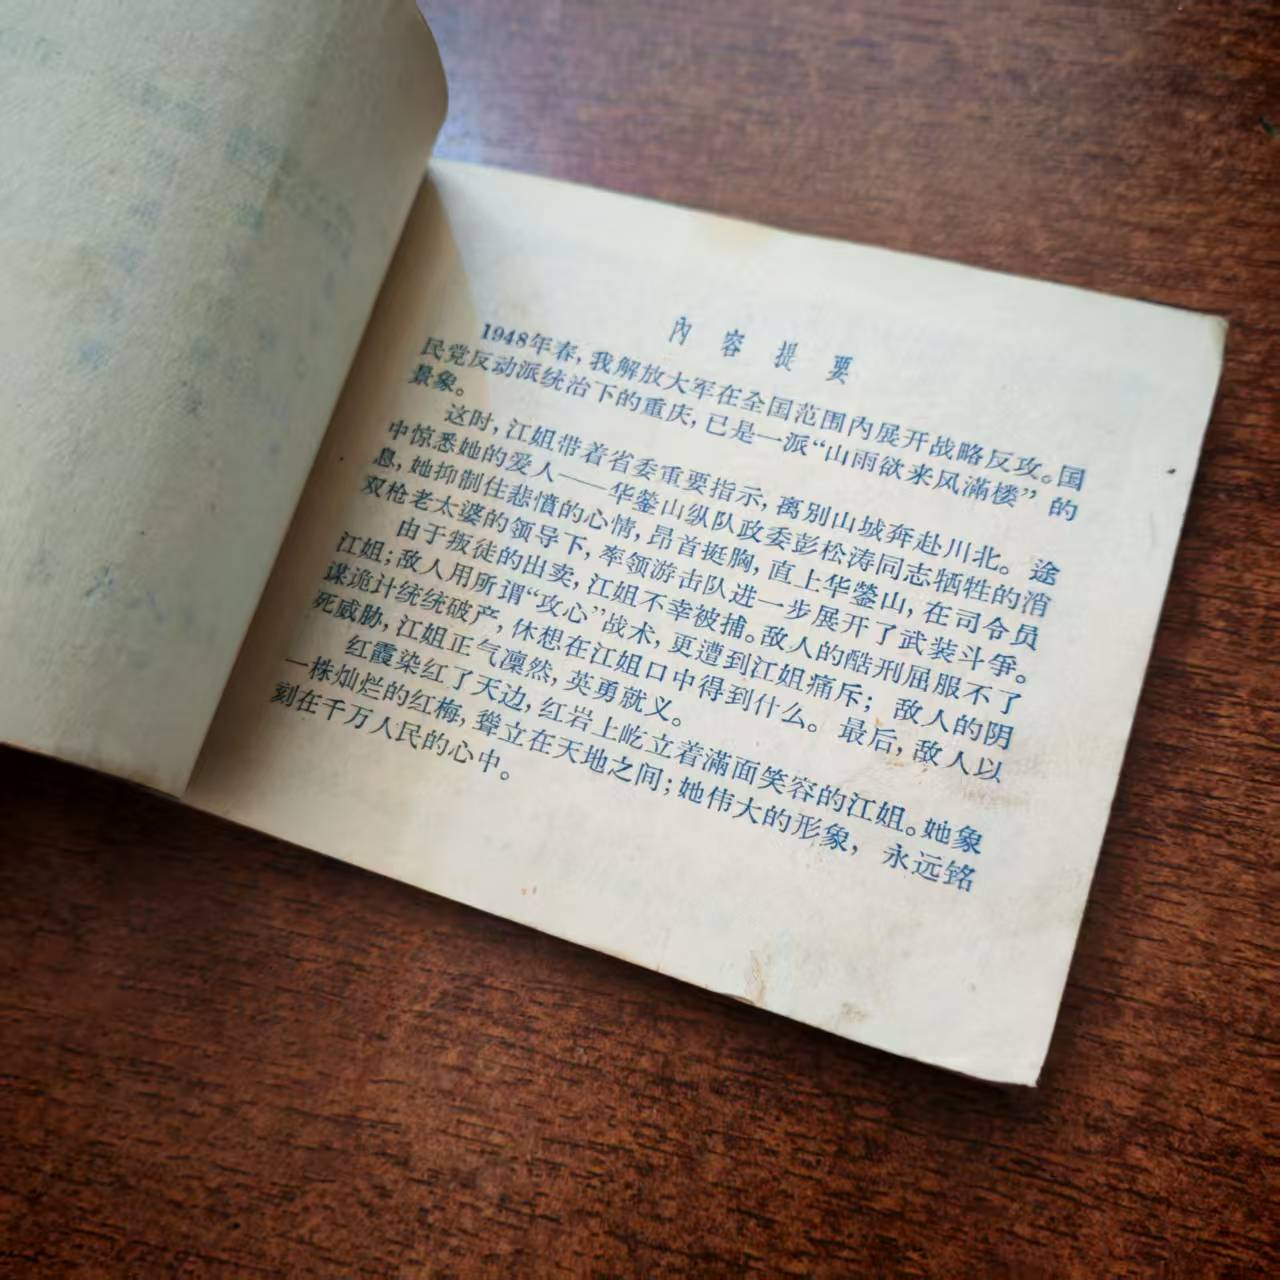 內容提要
1948年春，我解放大军在全国范围內展开战略反攻。国
民党反动派统治下的重庆，已是一派“山雨欲来风滿楼”的
景象。
这时，江姐带着省委重要指示，离别山城奔赴川北。途
中惊悉她的爱人——华蓥山纵队政委彭松涛同志牺牲的消
息，她抑制住悲憤的心情，昂首挺胸，直上华蓥山，在司令员
双枪老太婆的领导下，率领游击队进一步展开了武装斗爭。
由于叛徒的出卖，江姐不幸被捕。敌人的酷刑屈服不了
江姐；敌人用所谓“攻心”战术，更遭到江姐痛斥；敌人的阴
谋诡计统统破产，休想在江姐口中得到什么。最后，敌人以
死威胁，江姐正气凜然，英勇就义。
红霞染红了天边，红岩上屹立着滿面笑容的江姐。她象
一株灿烂的红梅，耸立在天地之间；她伟大的形象，永远铭
刻在千万人民的心中。